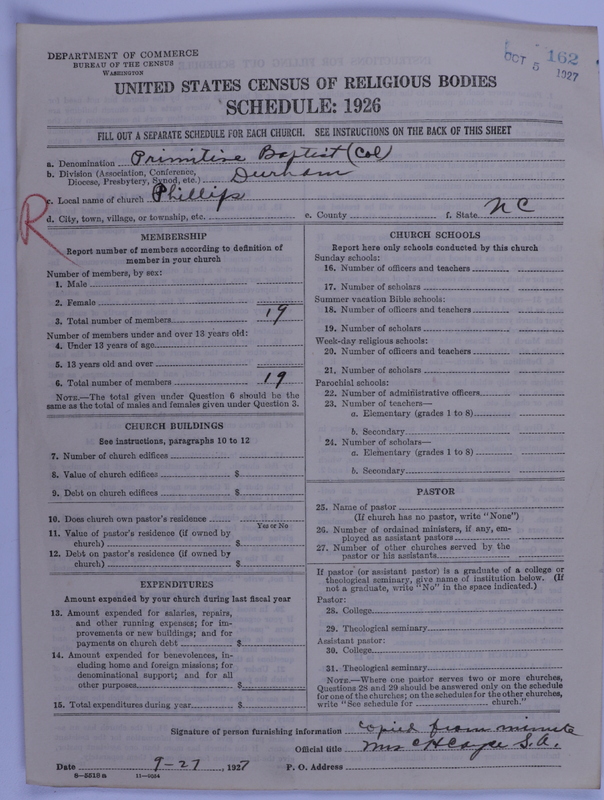 DEPARTMENT OF COMMERCE
BUREAU OF THE CENSUS
WASHINGTON
OCT 5 1927
162
UNITED STATES CENSUS OF RELIGIOUS BODIES
SCHEDULE: 1926
FILL OUT A SEPARATE SCHEDULE FOR EACH CHURCH. SEE INSTRUCTIONS ON THE BACK OF THIS SHEET
a. Denomination Primitive Baptist (Col)
b. Division (Association, Conference,
Diocese, Presbytery, Synod, etc.) Durham
R
c. Local name of church Phillips
d. City, town, village, or township, etc. e. County f. State NC
MEMBERSHIP
Report number of members according to definition of
member in your church
Number of members, by sex:
1. Male
2. Female
3. Total number of members 19
Number of members under and over 13 years old:
4. Under 13 years of age
5. 13 years old and over
6. Total number of members 19
NOTE.—The total given under Question 6 should be the
same as the total of males and females given under Question 3.
CHURCH BUILDINGS
See instructions, paragraphs 10 to 12
7. Number of church edifices
8. Value of church edifices $
9. Debt on church edifices $
10. Does church own pastor's residence
Yes or No
11. Value of pastor's residence (if owned by
church) $
12. Debt on pastor's residence (if owned by
church) $
EXPENDITURES
Amount expended by your church during last fiscal year
13. Amount expended for salaries, repairs,
and other running expenses; for im-
provements or new buildings; and for
payments on church debt $
14. Amount expended for benevolences, in-
cluding home and foreign missions; for
denominational support; and for all
other purposes $
15. Total expenditures during year $
CHURCH SCHOOLS
Report here only schools conducted by this church
Sunday schools:
16. Number of officers and teachers
17. Number of scholars
Summer vacation Bible schools:
18. Number of officers and teachers
19. Number of scholars
Week-day religious schools:
20. Number of officers and teachers
21. Number of scholars
Parochial schools:
22. Number of administrative officers
23. Number of teachers—
a. Elementary (grades 1 to 8)
b. Secondary
24. Number of scholars—
a. Elementary (grades 1 to 8)
b. Secondary
PASTOR
25. Name of pastor
(If church has no pastor, write "None")
26. Number of ordained ministers, if any, em-
ployed as assistant pastors
27. Number of other churches served by the
pastor or his assistants
If pastor (or assistant pastor) is a graduate of a college or
theological seminary, give name of institution below. (If
not a graduate, write "No" in the space indicated.)
Pastor:
28. College
29. Theological seminary
Assistant pastor:
30. College
31. Theological seminary
NOTE.—Where one pastor serves two or more churches,
Questions 28 and 29 should be answered only on the schedule
for one of the churches; on the schedules for the other churches,
write "See schedule for church."
Signature of person furnishing information copied from minute
Official title Mrs C H S. A.
Date 9-27, 1927 P. O. Address
8-5518 a 11-9054